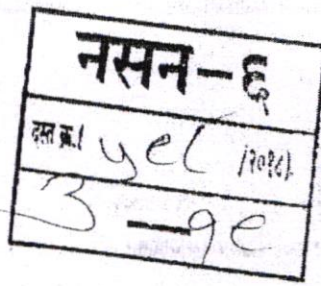 नसन-६
दस्त क्र.। ५९८ /२०१८).
३ — १९